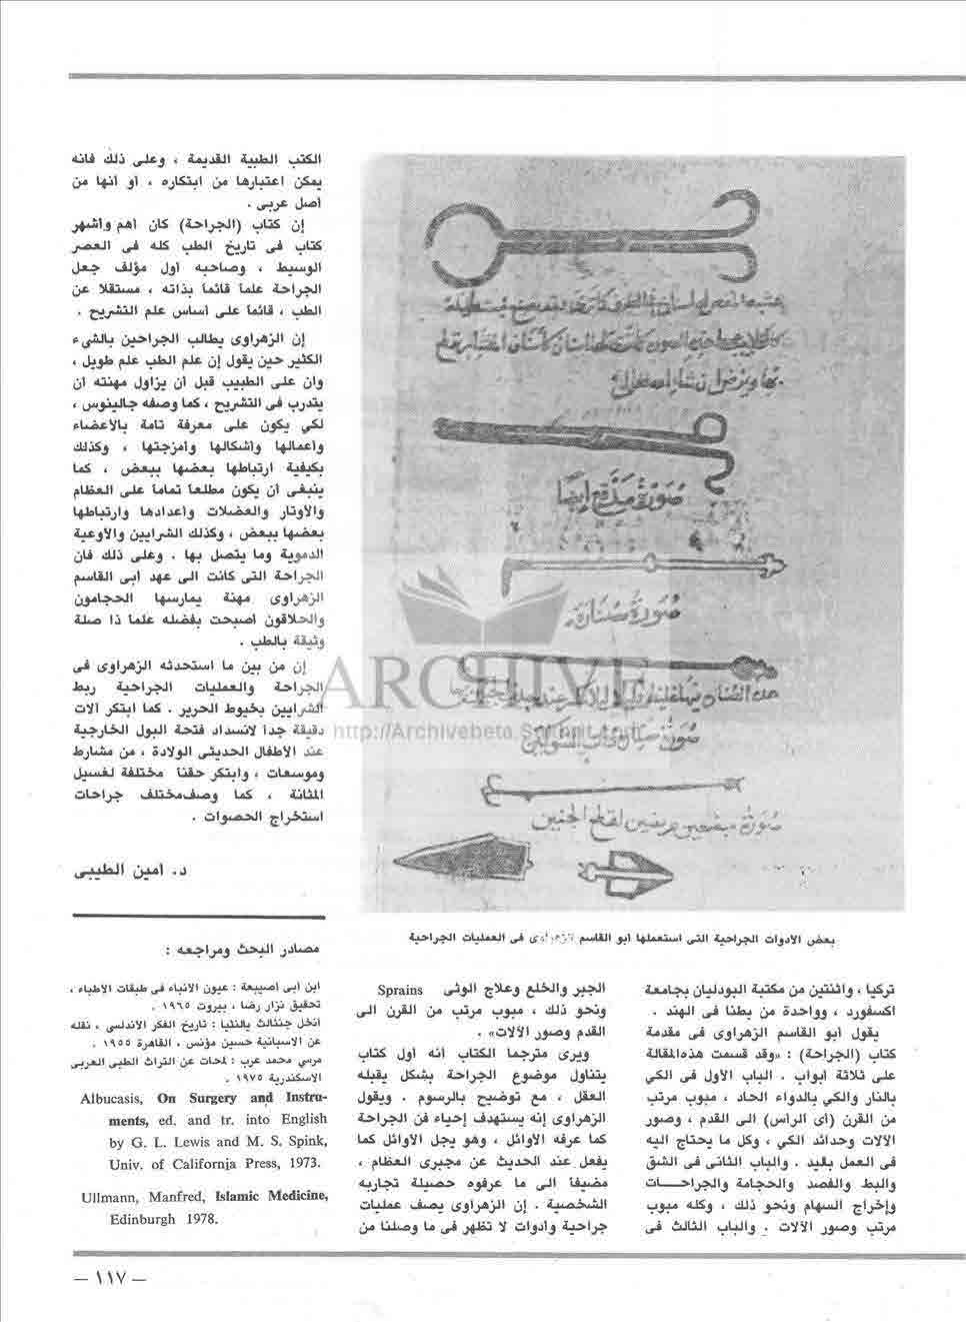 تركيا ، واثنتين من مكتبة البودليان بجامعة
اكسفورد ، وواحدة من بطنا في الهند .
يقول أبو القاسم الزهراوى فى مقدمة
كتاب (الجراحة) : «وقد قسمت هذه المقالة
على ثلاثة ابواب . الباب الأول فى الكي
بالنار والكي بالدواء الحاد ، مبوب مرتب
من القرن (أى الرأس) الى القدم ، وصور
الآلات وحدائد الكي ، وكل ما يحتاج اليه
فى العمل باليد . والباب الثانى فى الشق
والبط والفصد والحجامة والجراحـــات
وإخراج السهام ونحو ذلك ، وكله مبوب
مرتب وصور الآلات . والباب الثالث فى
الجبر والخلع وعلاج الوثى Sprains
ونحو ذلك ، مبوب مرتب من القرن الى
القدم وصور الآلات» .
ويرى مترجما الكتاب أنه أول كتاب
يتناول موضوع الجراحة بشكل يقبله
العقل ، مع توضيح بالرسوم . ويقول
الزهراوى إنه يستهدف إحياء فن الجراحة
كما عرفه الأوائل ، وهو يجل الأوائل كما
يفعل عند الحديث عن مجبرى العظام ،
مضيفا الى ما عرفوه حصيلة تجاربه
الشخصية . إن الزهراوى يصف عمليات
جراحية وأدوات لا تظهر فى ما وصلنا من
الكتب الطبية القديمة ، وعلى ذلك فانه
يمكن اعتبارها من ابتكاره ، أو أنها من
أصل عربى .
إن كتاب (الجراحة) كان أهم وأشهر
كتاب فى تاريخ الطب كله فى العصر
الوسيط ، وصاحبه أول مؤلف جعل
الجراحة علماً قائماً بذاته ، مستقلا عن
الطب ، قائماً على أساس علم التشريح .
إن الزهراوى يطالب الجراحين بالشيء
الكثير حين يقول إن علم الطب علم طويل ،
وان على الطبيب قبل أن يزاول مهنته أن
يتدرب فى التشريح ، كما وصفه جالينوس ،
لكي يكون على معرفة تامة بالأعضاء
وأعمالها وأشكالها وأمزجتها ، وكذلك
بكيفية ارتباطها بعضها ببعض ، كما
ينبغى أن يكون مطلعاً تماماً على العظام
والأوتار والعضلات وأعدادها وارتباطها
بعضها ببعض ، وكذلك الشرايين والأوعية
الدموية وما يتصل بها . وعلى ذلك فان
الجراحة التى كانت الى عهد أبى القاسم
الزهراوى مهنة يمارسها الحجامون
والحلاقون أصبحت بفضله علما ذا صلة
وثيقة بالطب .
إن من بين ما استحدثه الزهراوى فى
الجراحة والعمليات الجراحية ربط
الشرايين بخيوط الحرير . كما ابتكر آلات
دقيقة جداً لانسداد فتحة البول الخارجية
عند الأطفال الحديثى الولادة ، من مشارط
وموسعات ، وابتكر حقنا مختلفة لغسيل
المثانة ، كما وصف مختلف جراحات
استخراج الحصوات .
د. أمين الطيبى
صورة مدفع أيضا
صورة صنارة
بعض الأدوات الجراحية التى استعملها أبو القاسم الزهراوى فى العمليات الجراحية
ARCHIVE
مصادر البحث ومراجعه :
ابن أبى أصيبعة : عيون الأنباء فى طبقات الأطباء ،
تحقيق نزار رضا ، بيروت ١٩٦٥ .
أنخل جنثالث بالنثيا : تاريخ الفكر الأندلسى ، نقله
عن الأسبانية حسين مؤنس ، القاهرة ١٩٥٥ .
مرسي محمد عرب : لمحات عن التراث الطبى العربى
الاسكندرية ١٩٧٥ .
Albucasis, On Surgery and Instru-
ments, ed. and tr. into English
by G. L. Lewis and M. S. Spink,
Univ. of California Press, 1973.
Ullmann, Manfred, Islamic Medicine,
Edinburgh 1978.
— ١١٧ —